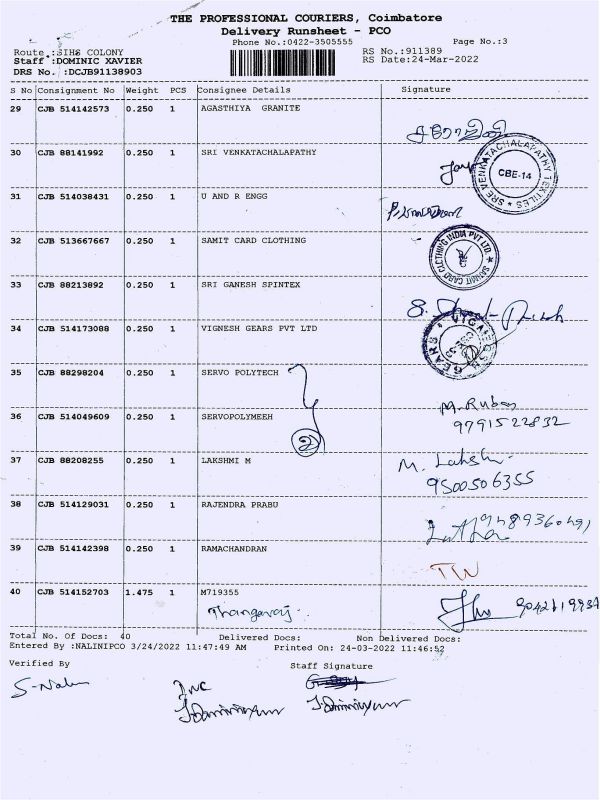 THE PROFESSIONAL COURIERS, Coimbatore
Delivery Runsheet - PCO
Phone No.:0422-3505555 Page No.:3
Route :SIHS COLONY RS No.:911389
Staff :DOMINIC XAVIER RS Date:24-Mar-2022
DRS No. :DCJB91138903
S No Consignment No Weight PCS Consignee Details Signature
29 CJB 514142573 0.250 1 AGASTHIYA GRANITE
30 CJB 88141992 0.250 1 SRI VENKATACHALAPATHY
SRE VENKATACHALAPATHY TEXTILES
CBE-14
31 CJB 514038431 0.250 1 U AND R ENGG
32 CJB 513667667 0.250 1 SAMIT CARD CLOTHING
SAMIT CARD CLOTHING INDIA PVT LTD.
33 CJB 88213892 0.250 1 SRI GANESH SPINTEX
34 CJB 514173088 0.250 1 VIGNESH GEARS PVT LTD
GEARS
35 CJB 88298204 0.250 1 SERVO POLYTECH
36 CJB 514049609 0.250 1 SERVOPOLYMEEH
2
M. Ruban
9791522832
37 CJB 88208255 0.250 1 LAKSHMI M
M. Lakshmi
9500506355
38 CJB 514129031 0.250 1 RAJENDRA PRABU
39 CJB 514142398 0.250 1 RAMACHANDRAN
TW
40 CJB 514152703 1.475 1 M719355
Thangaraj
Total No. Of Docs: 40 Delivered Docs: Non Delivered Docs:
Entered By :NALINIPCO 3/24/2022 11:47:49 AM Printed On: 24-03-2022 11:46:52
Verified By Staff Signature